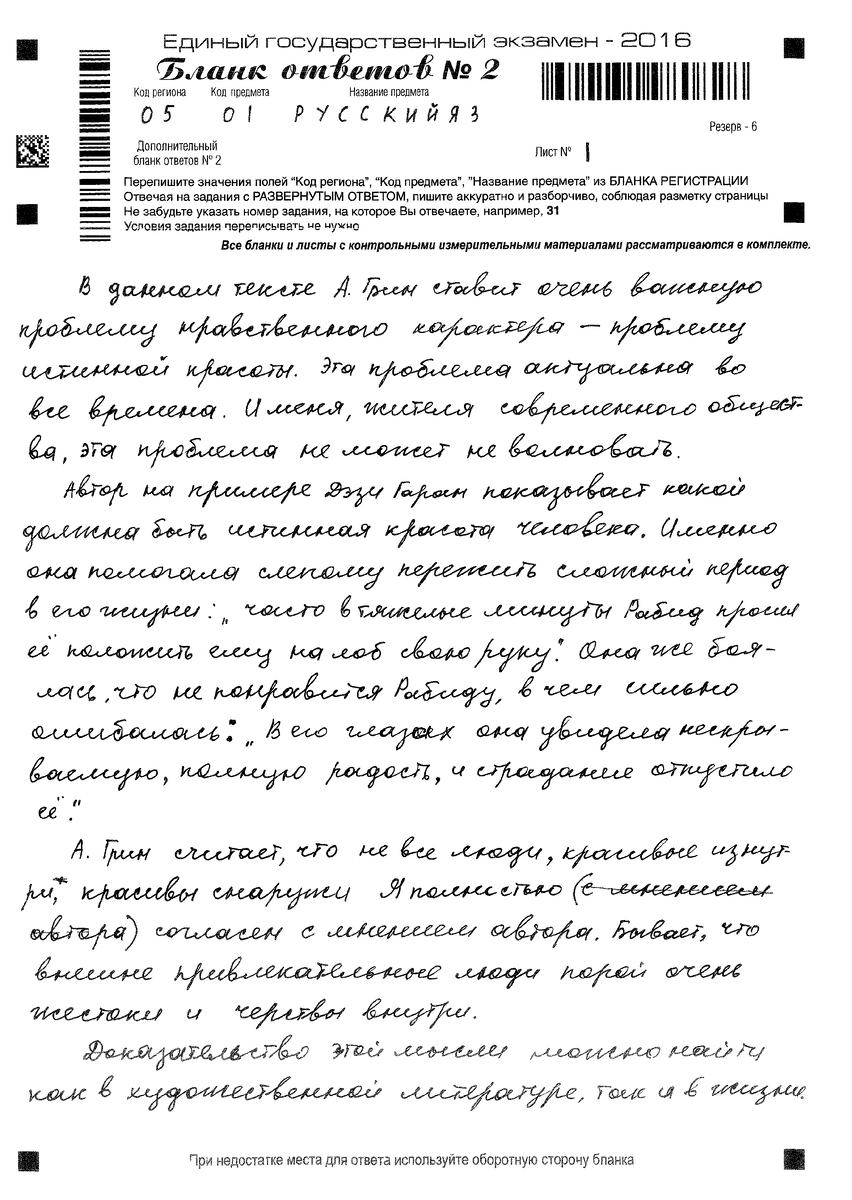 Единый государственный экзамен - 2016
Бланк ответов № 2
Код региона Код предмета Название предмета
05 01 РУССКИЙ ЯЗ
Резерв - 6
Дополнительный
бланк ответов № 2
Лист № 1
Перепишите значения полей "Код региона", "Код предмета", "Название предмета" из БЛАНКА РЕГИСТРАЦИИ
Отвечая на задания с РАЗВЕРНУТЫМ ОТВЕТОМ, пишите аккуратно и разборчиво, соблюдая разметку страницы
Не забудьте указать номер задания, на которое Вы отвечаете, например, 31
Условия задания переписывать не нужно
Все бланки и листы с контрольными измерительными материалами рассматриваются в комплекте.
В данном тексте А. Грин ставит очень важную
проблему нравственного характера – проблему
истинной красоты. Эта проблема актуальна во
все времена. И меня, жителя современного общест-
ва, эта проблема не может не волновать.
Автор на примере Дэзи Гаран показывает какой
должна быть истинная красота человека. Именно
она помогала слепому пережить сложный период
в его жизни: „часто в тяжелые минуты Рабид просил
её положить ему на лоб свою руку". Она же боя-
лась, что не понравится Рабиду, в чем сильно
ошибалась: „В его глазах она увидела нескры-
ваемую, полную радость, и страдание отпустило
её."
А. Грин считает, что не все люди, красивые изнут-
ри, красивы снаружи Я полностью (с мнением
автора) согласен с мнением автора. Бывает, что
внешне привлекательные люди порой очень
жестоки и черствы внутри.
Доказательство этой мысли можно найти
как в художественной литературе, так и в жизни.
При недостатке места для ответа используйте оборотную сторону бланка